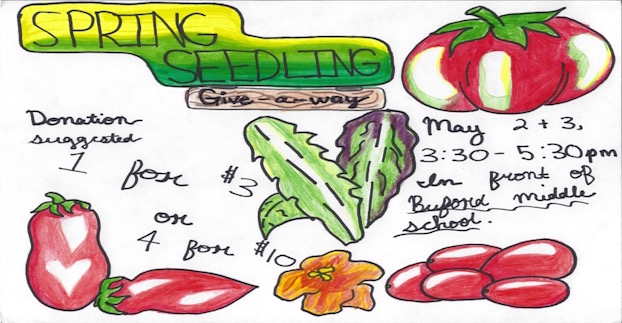 SPRING
SEEDLING
Give-a-way
Donation
suggested
1 for $3
or
4 for $10
May 2 + 3,
3:30 - 5:30pm
In front of
Buford middle
school.